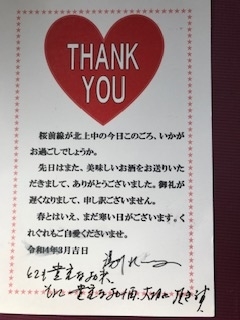 THANK
YOU
桜前線が北上中の今日このごろ、いかが
お過ごしでしょうか。
先日はまた、美味しいお酒をお送りいた
だきまして、ありがとうございました。御礼が
遅くなりまして、申し訳ございません。
春とはいえ、まだ寒い日がございます。く
れぐれもご自愛くださいませ。
令和4年3月吉日